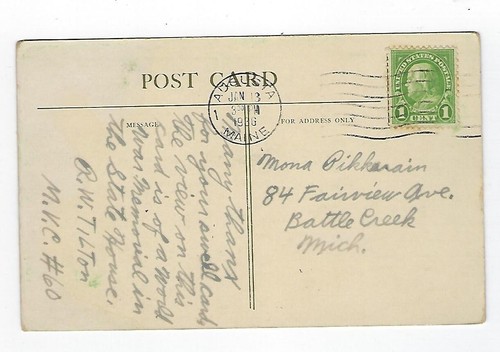 POST CARD
MESSAGE
FOR ADDRESS ONLY
AUGUSTA
1
JAN 13
PM
1936
MAINE
UNITED STATES POSTAGE
1 CENT 1
Mona Pikkarain
84 Fairview Ave.
Battle Creek
Mich.
Many thanx
for your swell card
the view on this
card is of a World
War Memorial in
the State House.
R.W. Tilton
M.V.C. #60